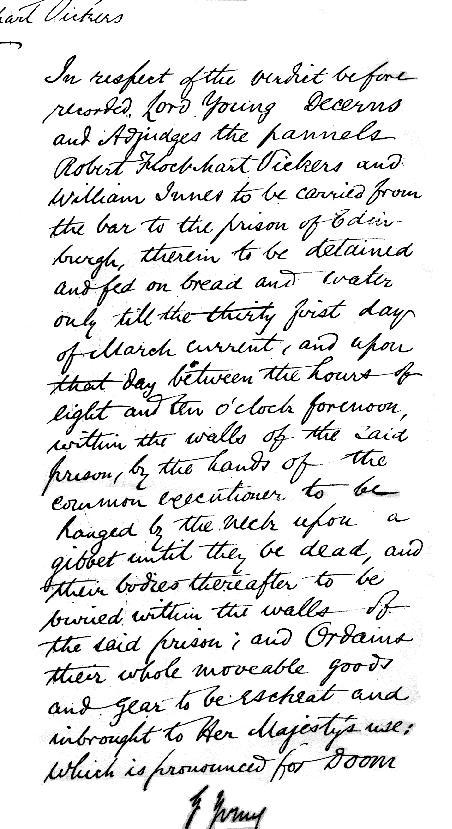 hart Vickers
In respect of the verdict before
recorded, Lord Young Decerns
and Adjudges the pannels
Robert Flockhart Vickers and
William Innes to be carried from
the bar to the prison of Edin-
burgh, therein to be detained
and fed on bread and water
only till the thirty first day
of March current, and upon
that day between the hours of
eight and ten o'clock forenoon,
within the walls of the said
prison, by the hands of the
common executioner to be
hanged by the neck upon a
gibbet until they be dead, and
their bodies thereafter to be
buried within the walls of
the said prison; and Ordains
their whole moveable goods
and gear to be escheat and
inbrought to Her Majesty's use:
which is pronounced for Doom
G Young